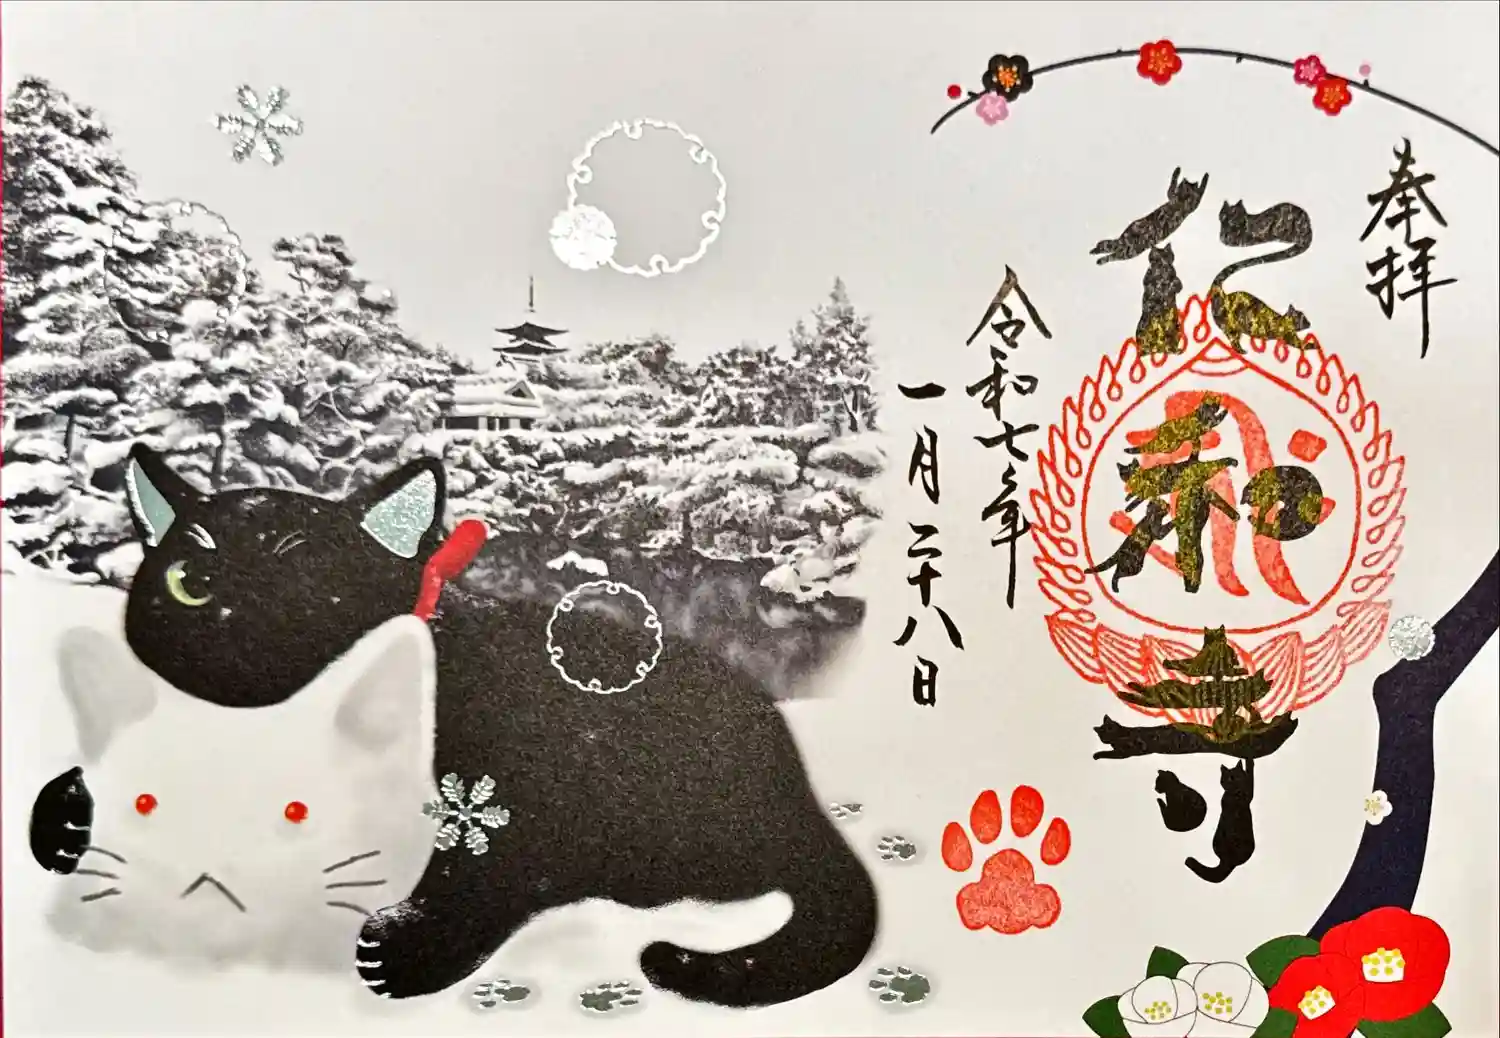 奉拝
仁和寺
令和七年
一月二十八日